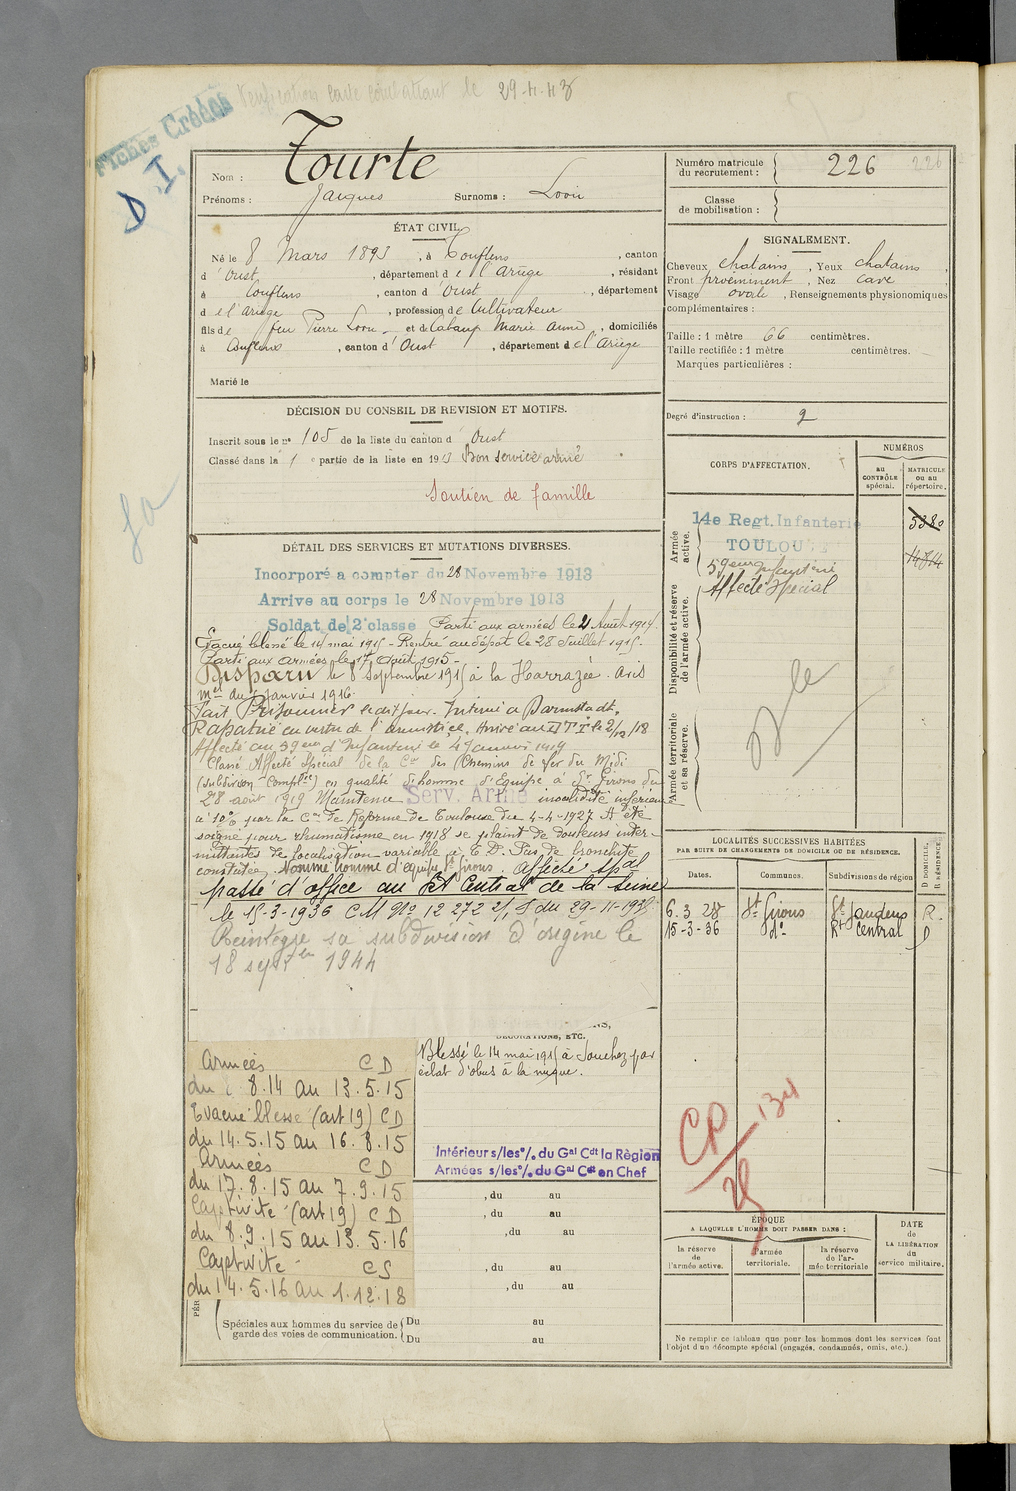 Vérification carte combattant le 29.4.43
Fiches Créées
D I.
Nom : Tourte
Prénoms : Jacques Surnoms : Louis
Numéro matricule du recrutement : 226 226
Classe de mobilisation :
ÉTAT CIVIL.
Né le 8 Mars 1893, à Couflens, canton
d'Oust, département de l'Ariège, résidant
à Couflens, canton d'Oust, département
de l'Ariège, profession de Cultivateur
fils de feu Pierre Louis et de Cabaup Marie Anne, domiciliés
à Couflens, canton d'Oust, département de l'Ariège
Marié le
SIGNALEMENT.
Cheveux chatains, Yeux chatains,
Front proéminent, Nez cave,
Visage ovale, Renseignements physionomiques
complémentaires :
Taille : 1 mètre 66 centimètres.
Taille rectifiée : 1 mètre centimètres.
Marques particulières :
Degré d'instruction : 2
DÉCISION DU CONSEIL DE REVISION ET MOTIFS.
Inscrit sous le n° 105 de la liste du canton d'Oust
Classé dans la 1e partie de la liste en 1913 Bon service armé
Soutien de famille
DÉTAIL DES SERVICES ET MUTATIONS DIVERSES.
Incorporé a compter du 28 Novembre 1913
Arrive au corps le 28 Novembre 1913
Soldat de 2e classe Parti aux armées le 2 Août 1914
Évacué blessé le 14 mai 1915 - Rentré au dépôt le 28 Juillet 1915.
Parti aux armées le 17 Août 1915 -
Disparu le 8 Septembre 1915 à la Harrazée. Avis
mel du 7 Janvier 1916
Fait Prisonnier le dit jour. Interné a Darmstadt.
Rapatrié en vertu de l'armistice. Arrivé au DTI le 2/12/18
Affecté au 59eme d'Infanterie le 4 Janvier 1919
Classé Affecté Spécial de la Cie des Chemins de fer du Midi
(subdivision complre) en qualité d'homme d'Equipe à St Girons du
28 août 1919 Maintenu Serv. Armé invalidité inférieure
à 10% par la Con de Réforme de Toulouse du 4-4-1927 A été
soigné pour rhumatisme en 1918 se plaint de douleurs inter-
mittantes de localisation variable à E.D. Pas de bronchite
constatée. Nommé homme d'équipe St Girons. Affecté spal
passé d'office au Rt Central de la Seine
le 15-3-1936 CM No 12 272 2/1 S du 29-11-1935
Reintègre sa subdivision d'origine le
18 septembre 1944
CORPS D'AFFECTATION.
NUMÉROS
au CONTRÔLE spécial.
MATRICULE ou au répertoire.
Armée active.
14e Regt. Infanterie
TOULOUSE
5380
59eme Infanterie
Affecté Spécial
Disponibilité et réserve de l'armée active.
Armée territoriale et sa réserve.
LOCALITÉS SUCCESSIVES HABITÉES
PAR SUITE DE CHANGEMENTS DE DOMICILE OU DE RÉSIDENCE.
Dates. Communes. Subdivisions de région
D DOMICILE. R RÉSIDENCE.
6.3.28 St Girons St Gaudens R.
15-3-36 do Rt Central
DÉCORATIONS, ETC.
Blessé le 14 mai 1915 à Souchez par
éclat d'obus à la nuque.
Armées CD
du 2.8.14 au 13.5.15
Evacué blessé (art 19) CD
du 14.5.15 au 16.8.15
Armées CD
du 17.8.15 au 7.9.15
Captivité (art 19) CD
du 8.9.15 au 13.5.16
Captivité CS
du 14.5.16 au 1.12.18
Intérieur s/les o/. du Gal Cdt la Règion
Armées s/les o/. du Gal Cdt en Chef
, du au
, du au
, du au
, du au
, du au
PÉR
Spéciales aux hommes du service de garde des voies de communication.
Du au
Du au
CP
ÉPOQUE
A LAQUELLE L'HOMME DOIT PASSER DANS :
la réserve de l'armée active.
l'armée territoriale.
la réserve de l'armée territoriale
DATE DE LA LIBÉRATION du service militaire.
Ne remplir ce tableau que pour les hommes dont les services font
l'objet d'un décompte spécial (engagés, condamnés, omis, etc.).